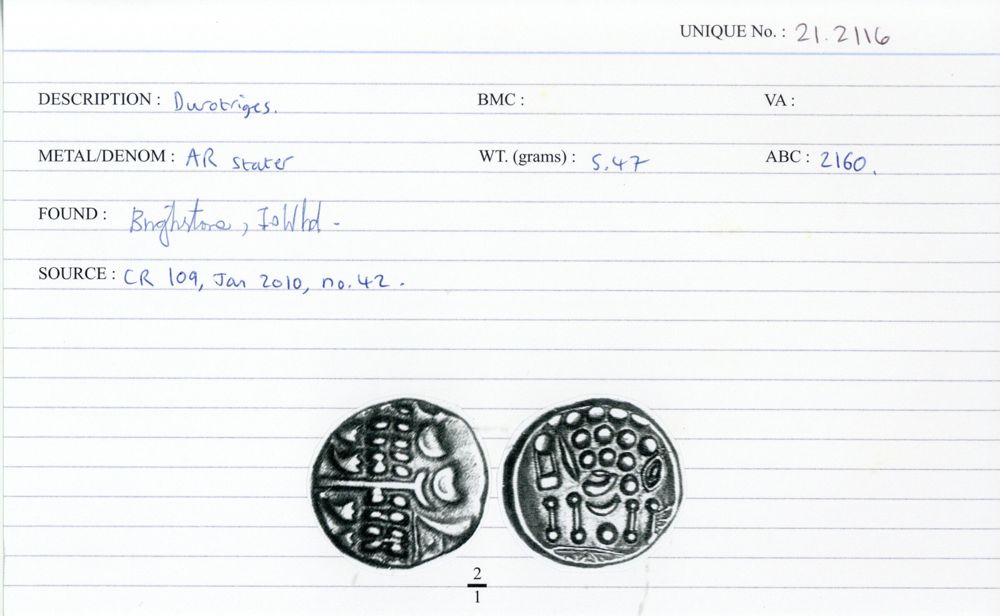 UNIQUE No. : 21.2116
DESCRIPTION : Durotriges. BMC : VA :
METAL/DENOM : AR stater WT. (grams) : 5.47 ABC : 2160.
FOUND : Brighstone, IoWhd.
SOURCE : CR 109, Jan 2010, no. 42.
2
1